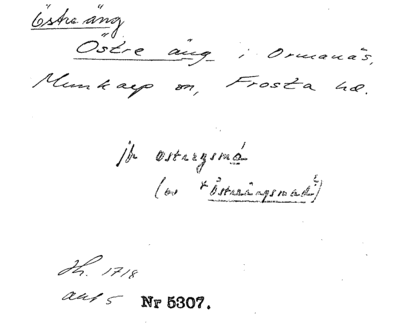 Östre äng
Östre äng i Ormanäs,
Munkarp sn, Frosta hd.
jfr
(av *Östeängsmad?)
Jh. 1718
akt 5 Nr 5307.